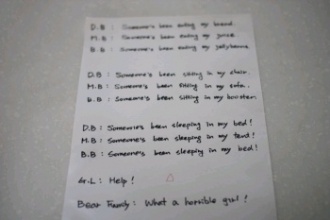 D.B : Someone's been eating my bread.
M.B : Someone's been eating my juice.
B.B : Someone's been eating my jellybeans.
D.B : Someone's been sitting in my chair.
M.B : Someone's been sitting in my sofa.
B.B : Someone's been sitting in my booster.
D.B : Someone's been sleeping in my bed!
M.B : Someone's been sleeping in my tend!
B.B : Someone's been sleeping in my bed!
G.L : Help!
Bear Family : What a horrible girl!